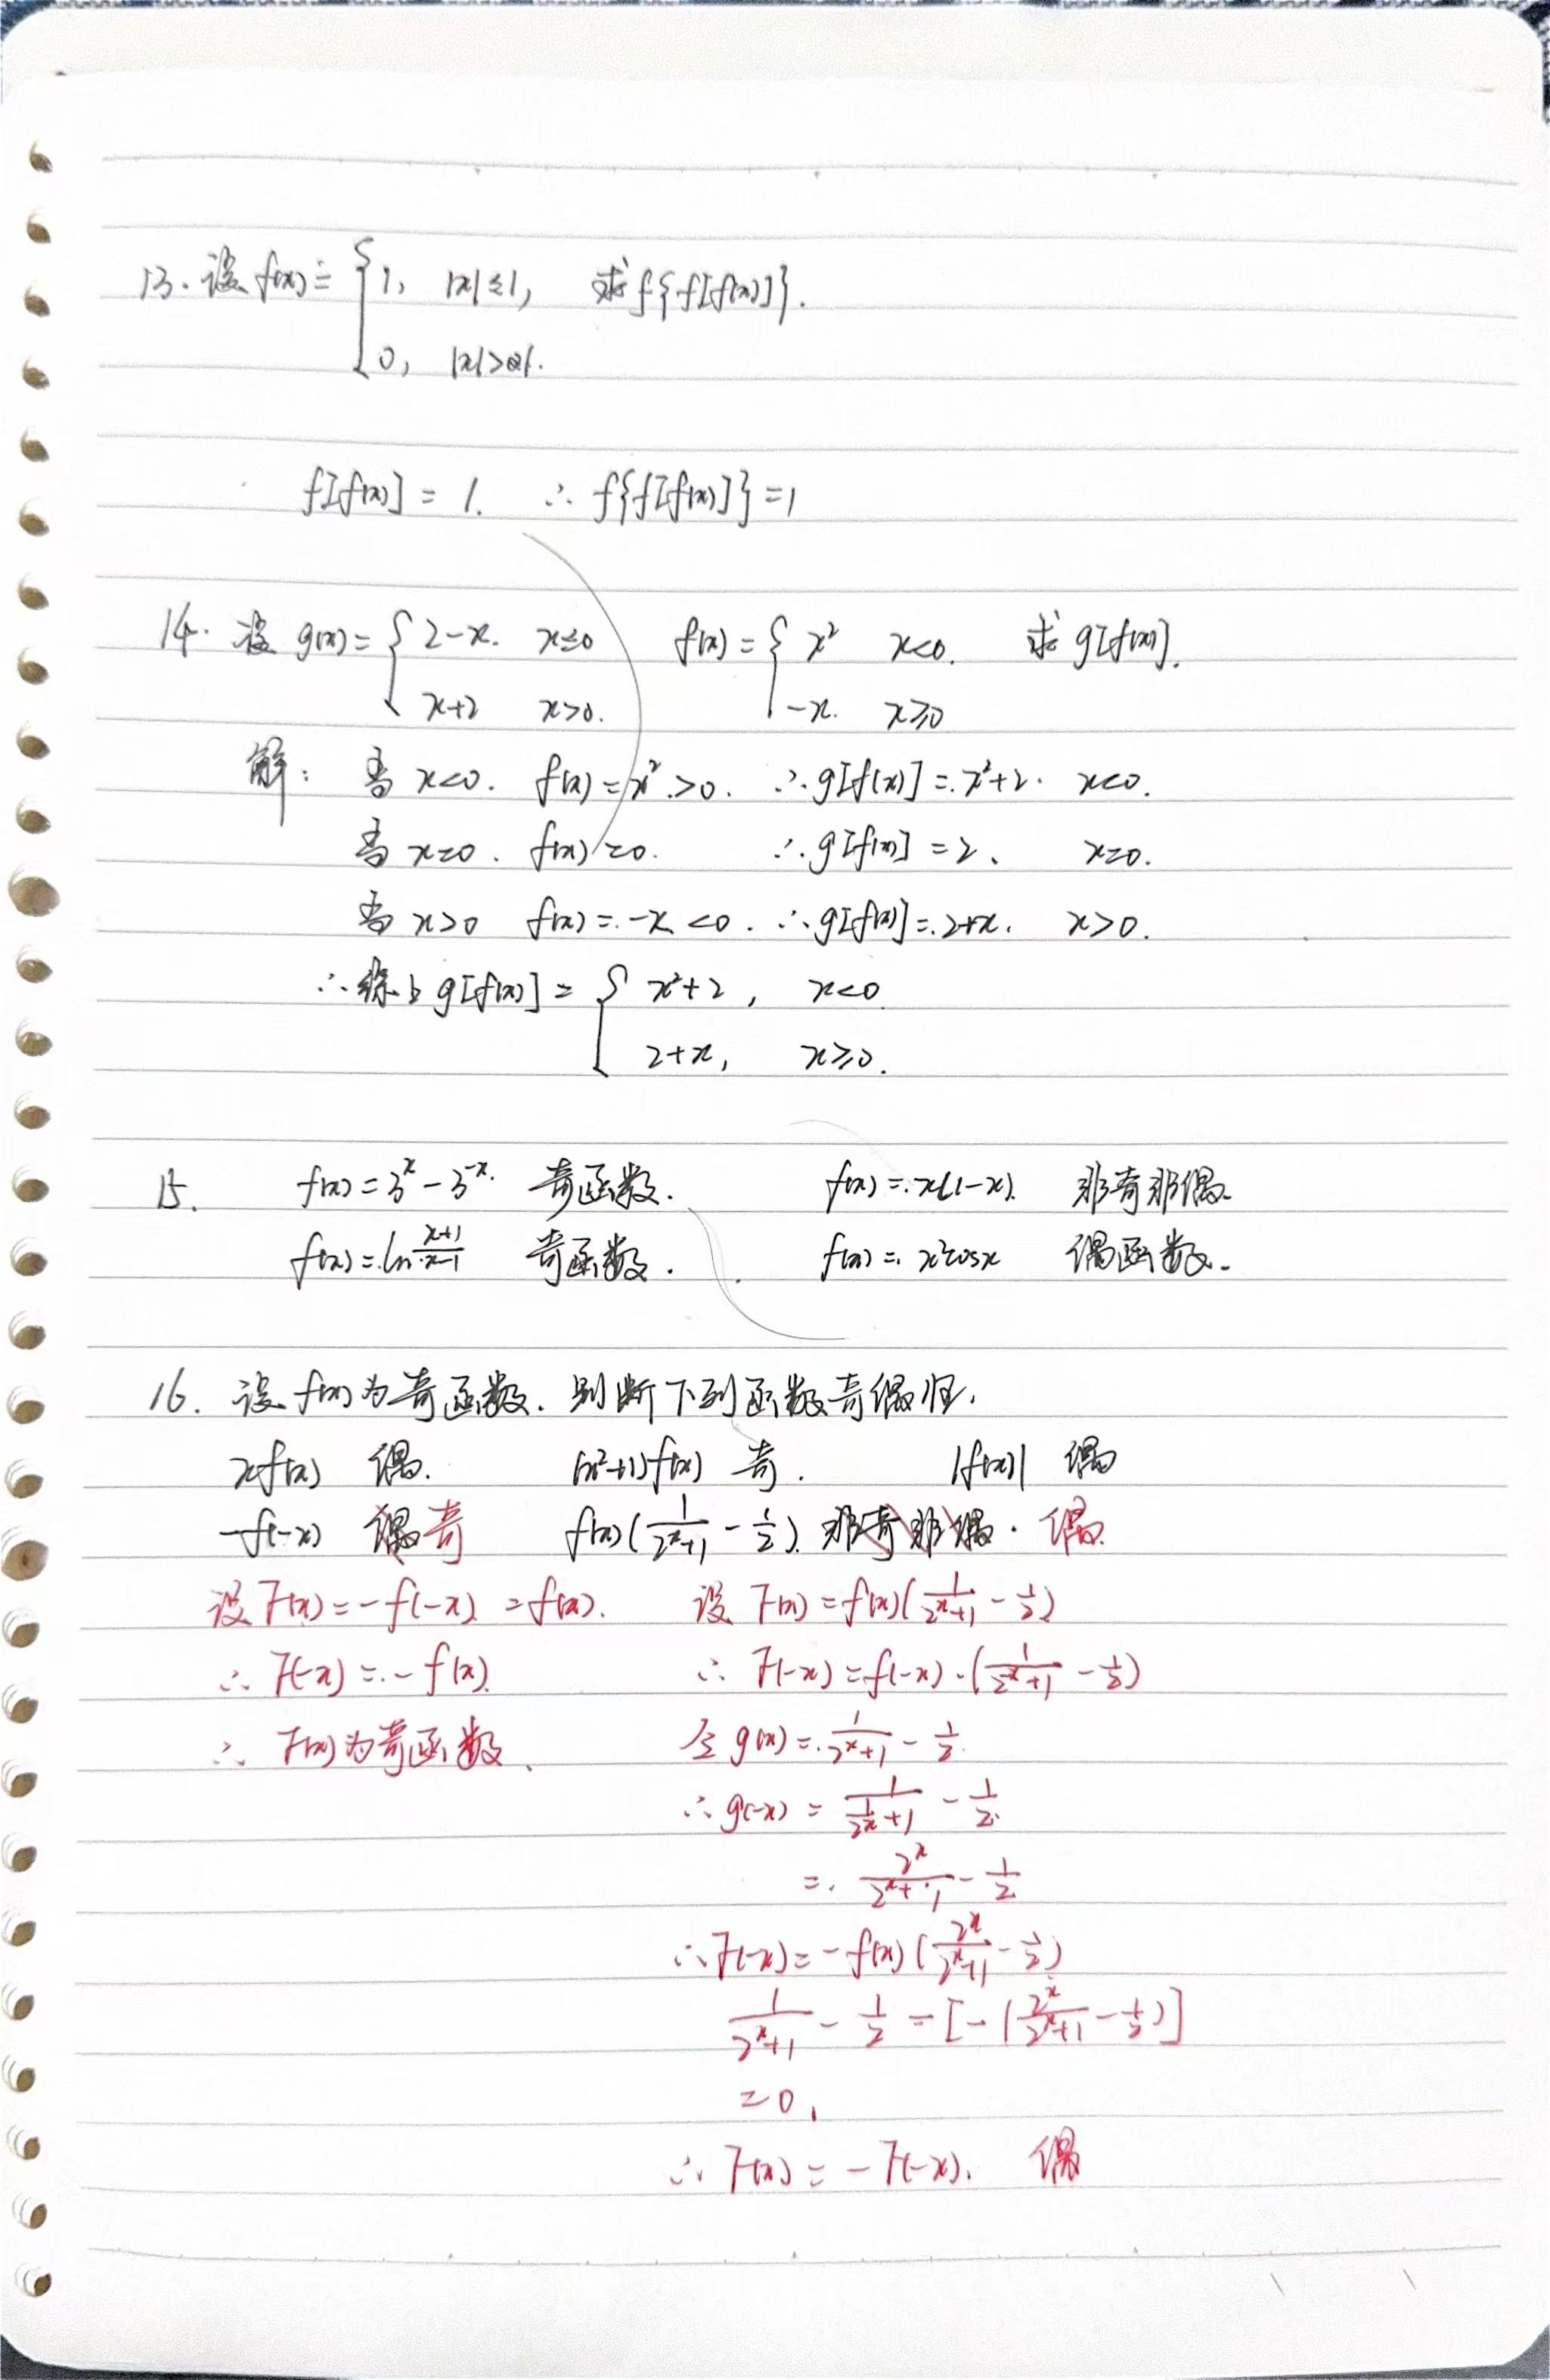 13. 设 f(x) = { 1, |x|≤1, 求 f{f[f(x)]}.
0, |x|>1.
f[f(x)] = 1. ∴ f{f[f(x)]} = 1
14. 设 g(x) = { 2-x. x≤0 f(x) = { x² x<0. 求 g[f(x)].
x+2 x>0. -x. x≥0
解: 当 x<0. f(x) = x² >0. ∴ g[f(x)] = x²+2. x<0.
当 x=0. f(x)=0. ∴ g[f(x)] = 2. x=0.
当 x>0 f(x) = -x <0. ∴ g[f(x)] = 2+x. x>0.
∴ 综上 g[f(x)] = { x²+2, x<0
2+x, x≥0.
15. f(x) = 3^x - 3^-x. 奇函数. f(x) = x(1-x). 非奇非偶.
f(x) = ln (x+1)/(x-1) 奇函数. f(x) = x²cosx 偶函数.
16. 设 f(x) 为奇函数. 判断下列函数奇偶性.
xf(x) 偶. (x²+1)f(x) 奇. |f(x)| 偶
-f(-x) 偶 奇 f(x)(1/(2^x+1) - 1/2). 非奇非偶. 偶.
设 F(x) = -f(-x) = f(x). 设 F(x) = f(x)(1/(2^x+1) - 1/2)
∴ F(-x) = -f(x). ∴ F(-x) = f(-x)·(1/(2^-x+1) - 1/2)
∴ F(x) 为奇函数. 令 g(x) = 1/(2^x+1) - 1/2.
∴ g(-x) = 1/(1/2^x+1) - 1/2.
= 2^x/(2^x+1) - 1/2
∴ F(-x) = -f(x)(2^x/(2^x+1) - 1/2)
1/(2^x+1) - 1/2 - [-(2^x/(2^x+1) - 1/2)]
=0,
∴ F(x) = -F(-x). 偶